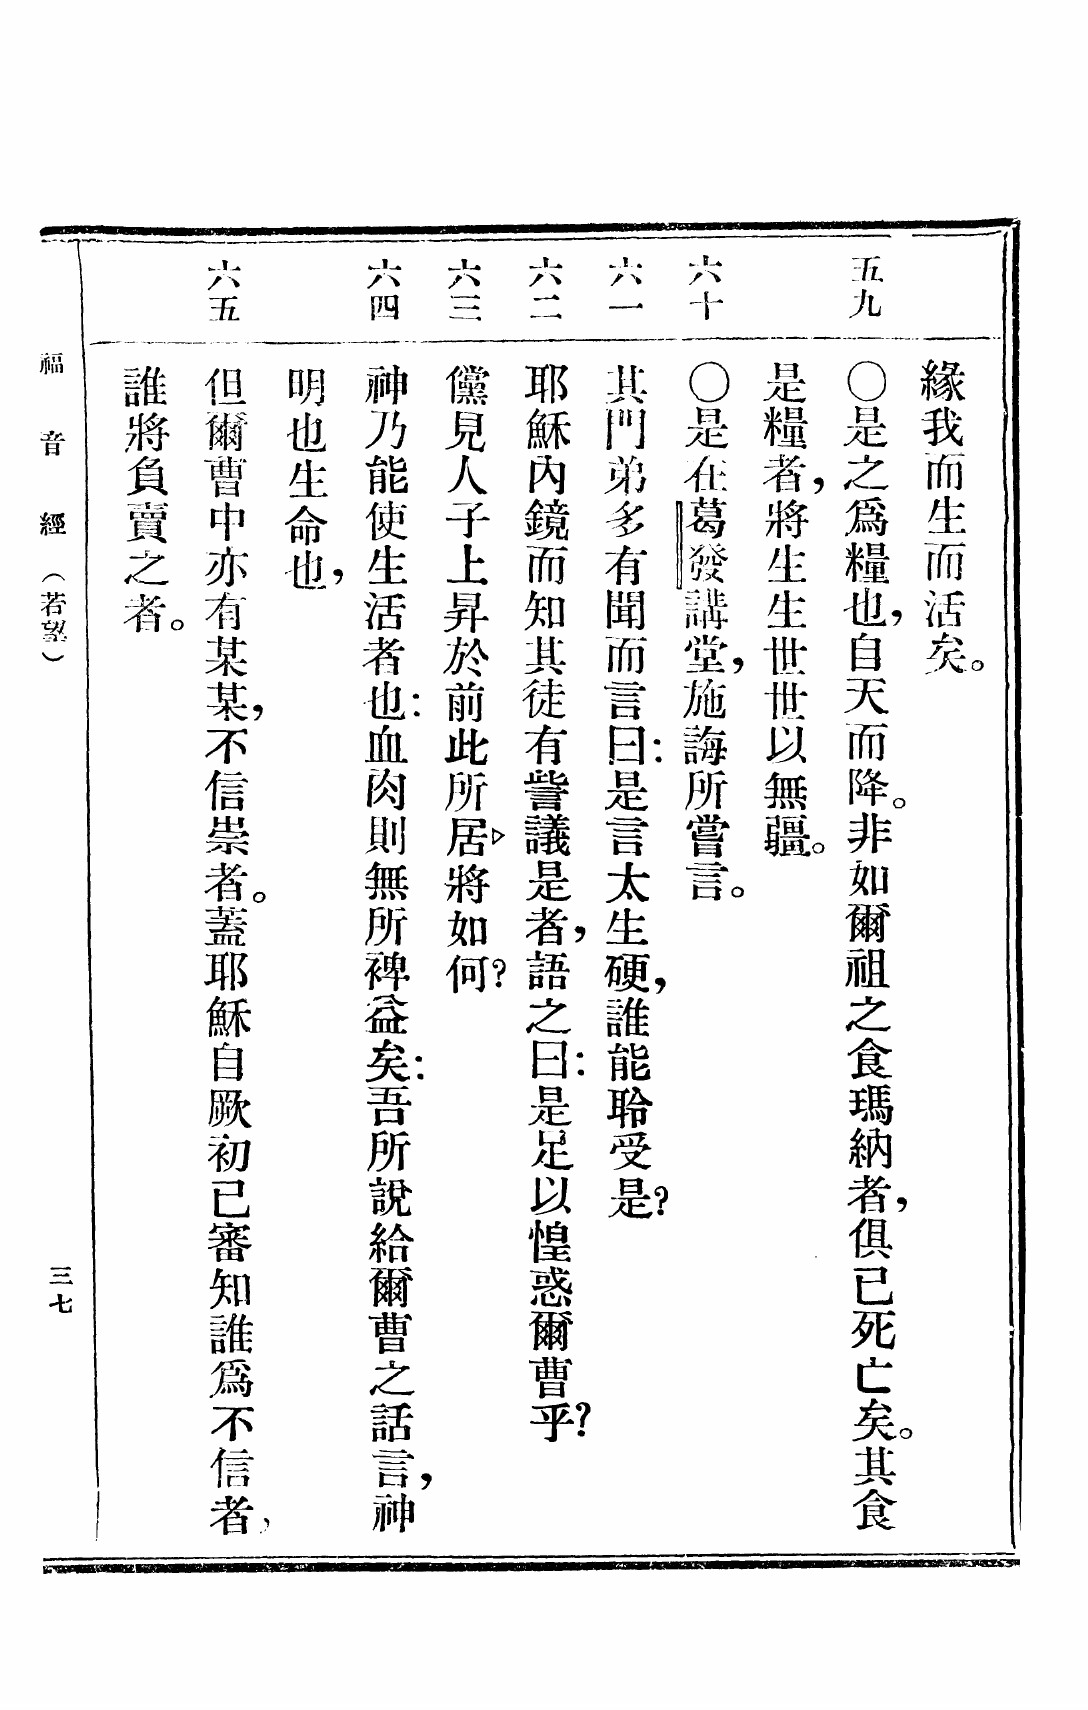 緣我而生而活矣。
五九
〇是之爲糧也，自天而降。非如爾祖之食瑪納者，俱已死亡矣。其食
是糧者，將生生世世以無疆。
六十
〇是在葛發講堂，施誨所嘗言。
六一
其門弟多有聞而言曰：是言太生硬，誰能聆受是？
六二
耶穌內鏡而知其徒有訾議是者，語之曰：是足以惶惑爾曹乎？
六三
儻見人子上昇於前此所居，將如何？
六四
神乃能使生活者也：血肉則無所裨益矣：吾所說給爾曹之話言，神
明也生命也，
六五
但爾曹中亦有某某，不信崇者。蓋耶穌自厥初已審知誰爲不信者，
誰將負賣之者。
福音經（若望）
三七